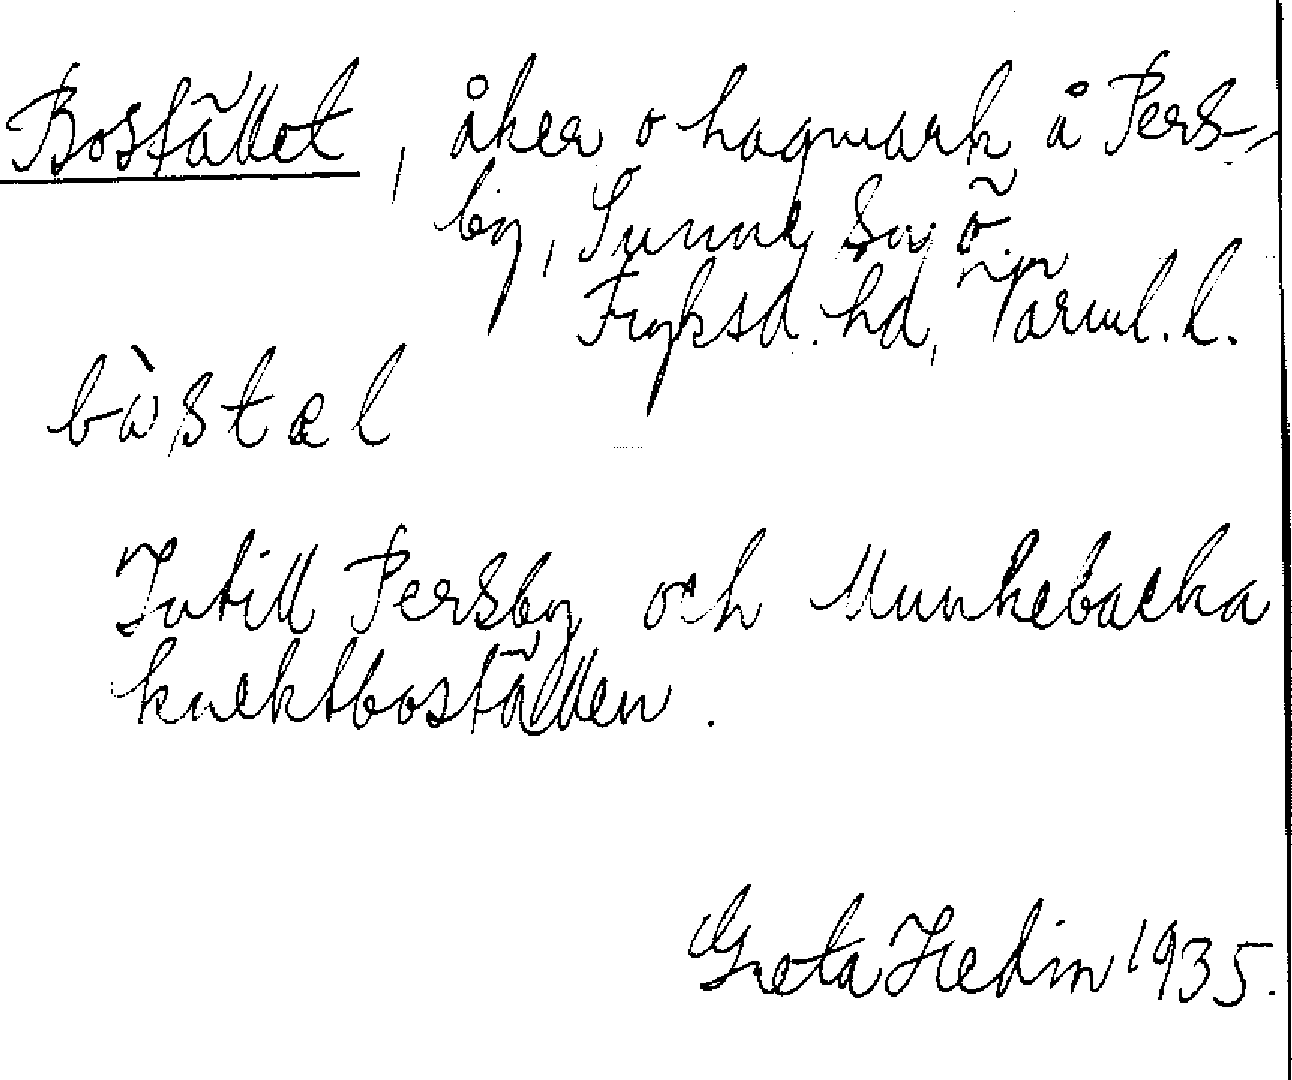 Bostället, åker o hagmark å Pers-
by, Sunne sn, ö.
Fryksd. hd, Värml. l.
bòstæl
Intill Persby och Munkebacka
knektboställen.
Greta Hedin 1935.